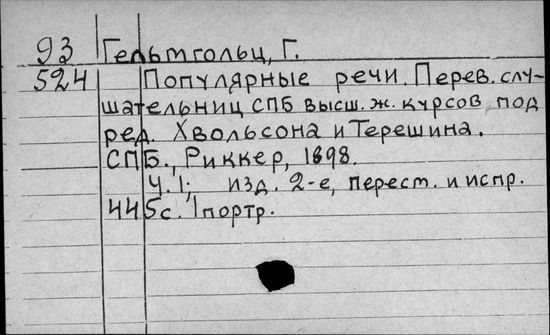 93 Гельмгольц, Г.
524 Популярные речи. Перев. слу-
шательниц СПБ высш. ж. курсов под
ред. Хвольсона и Терешина.
СПБ., Риккер, 1898.
Ч. I; изд. 2-е, перест. и испр.
445с. 1 портр.